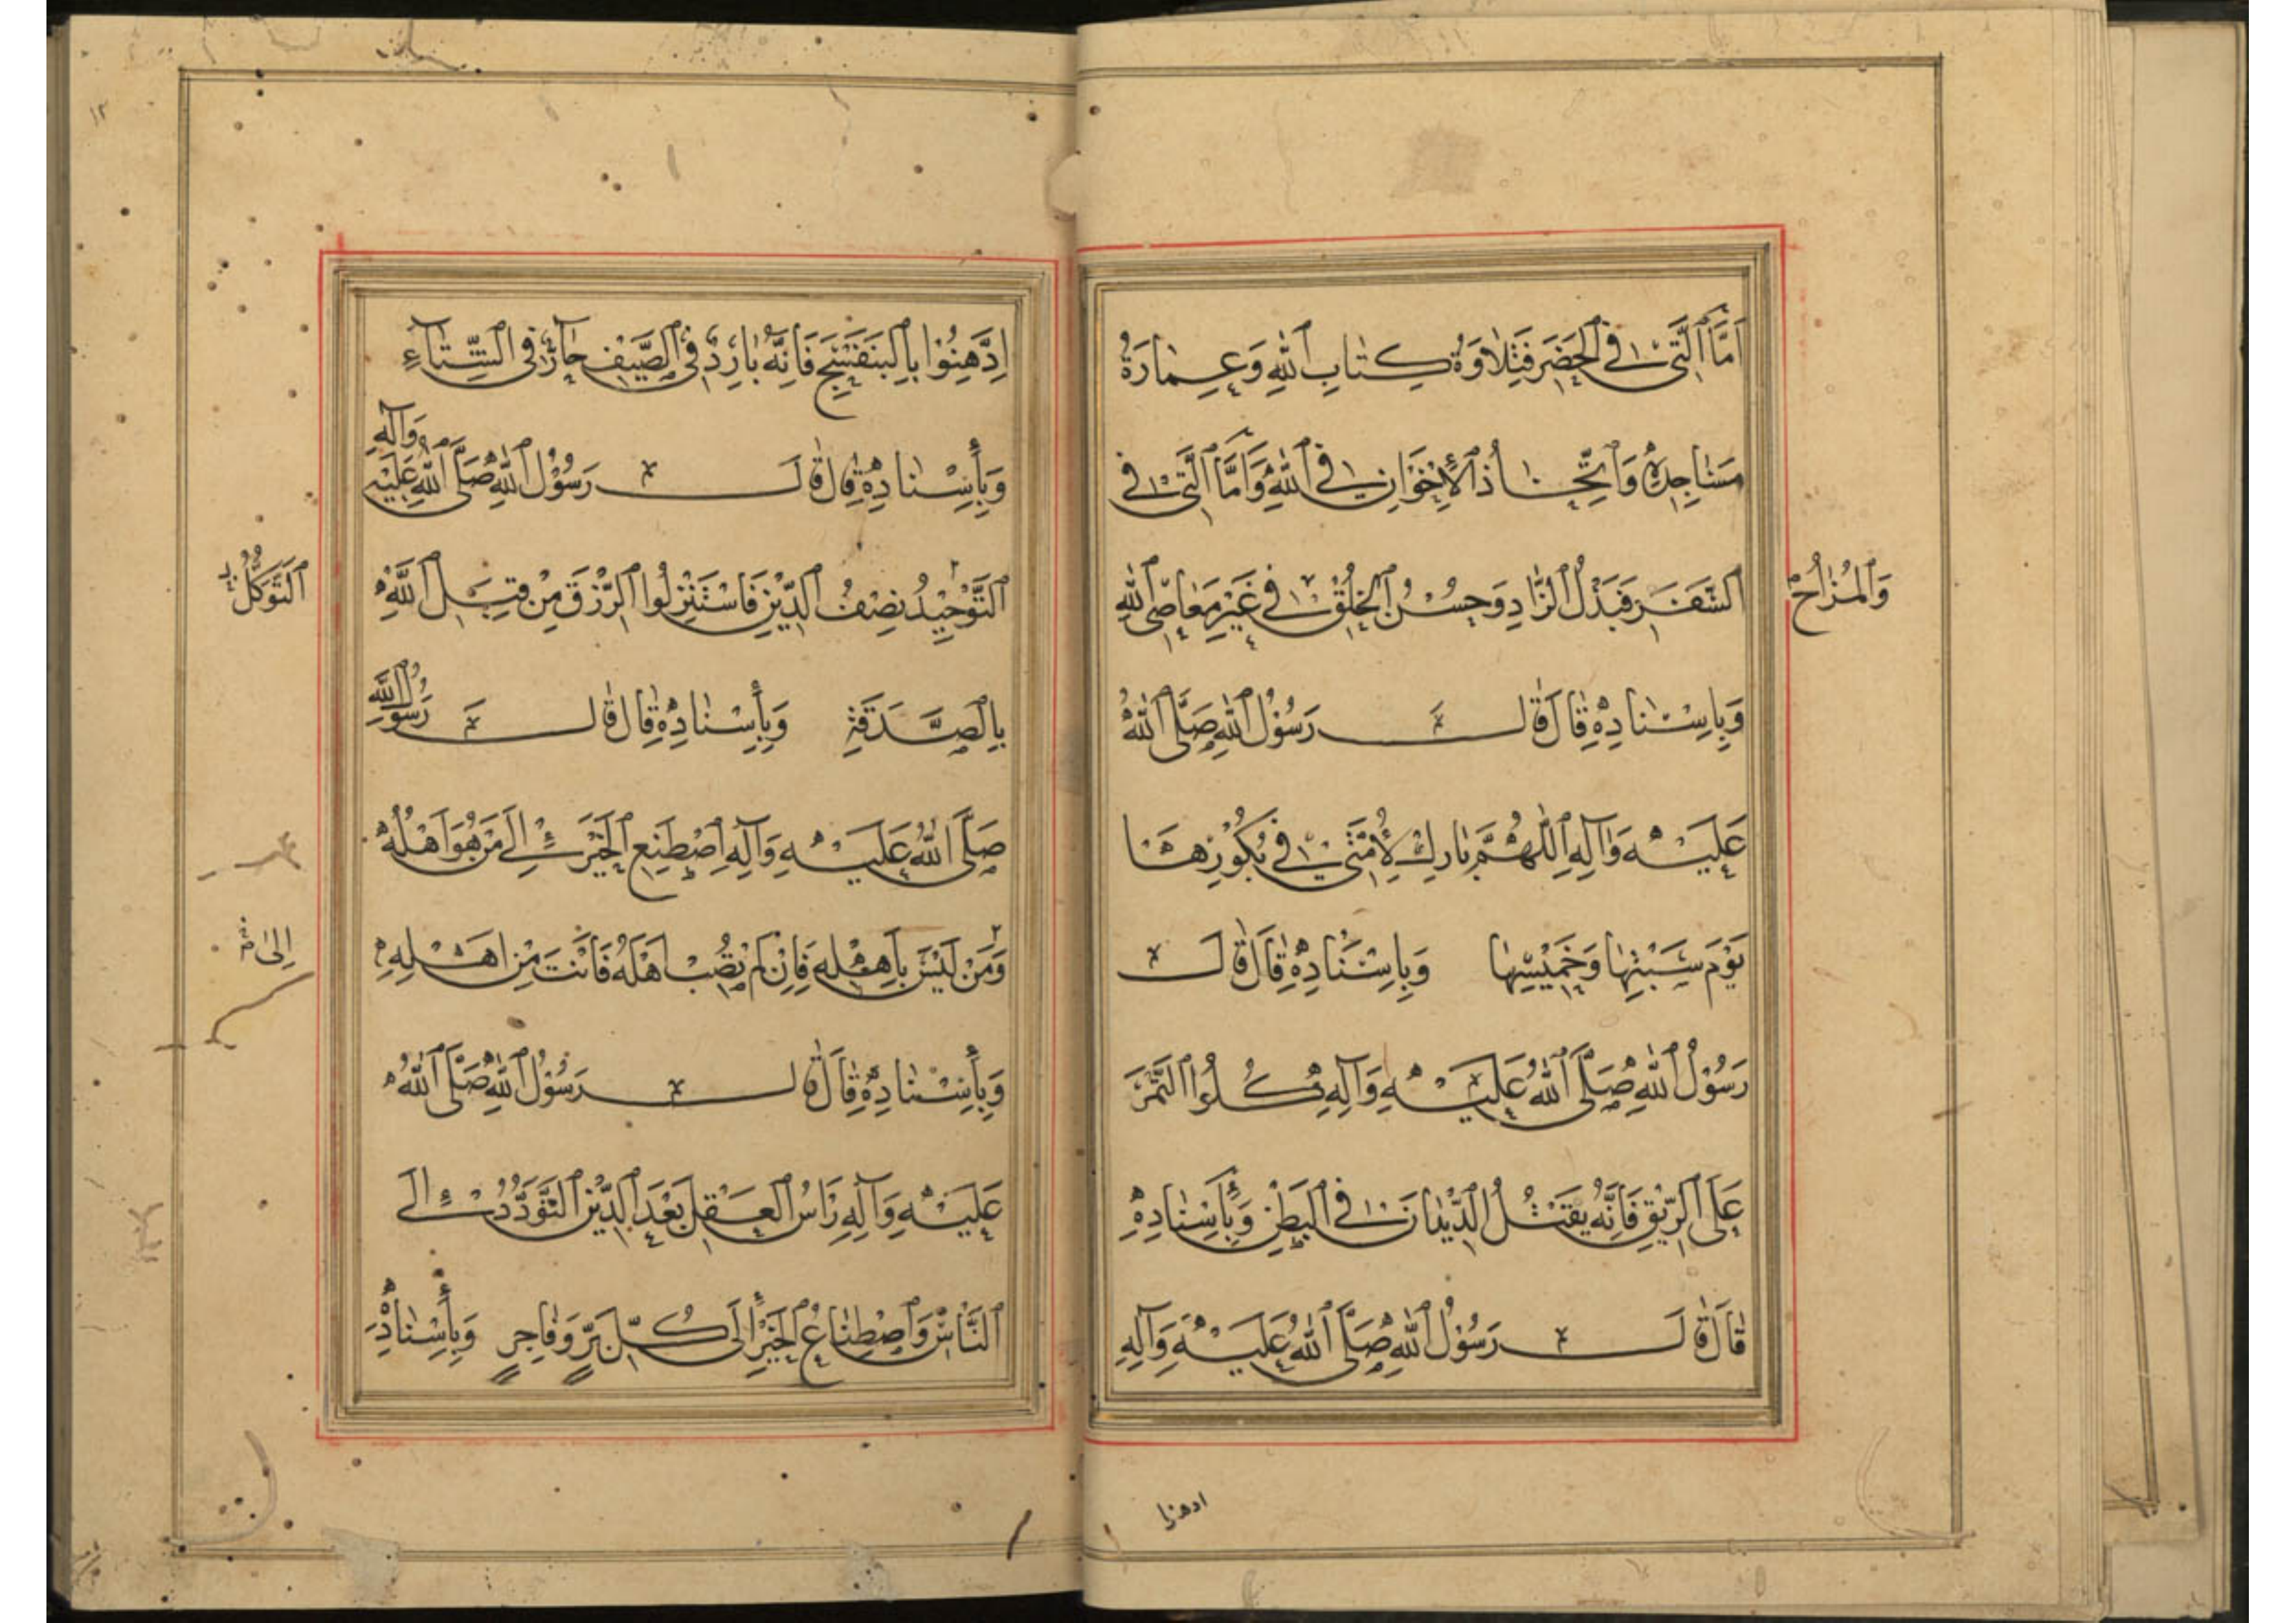 أَمَّا الَّتِي فِي الْحَضَرِ فَتِلَاوَةُ كِتَابِ اللهِ وَعِمَارَةُ
مَسَاجِدِهِ وَاتِّخَاذُ الْإِخْوَانِ فِي اللهِ وَأَمَّا الَّتِي فِي
السَّفَرِ فَبَذْلُ الزَّادِ وَحُسْنُ الْخُلْقِ فِي غَيْرِ مَعَاصِي اللهِ
وَالْمُزَاحُ
وَبِإِسْنَادِهِ قَالَ قَالَ رَسُولُ اللهِ صَلَّى اللهُ
عَلَيْهِ وَآلِهِ اللّٰهُمَّ بَارِكْ لِأُمَّتِي فِي بُكُورِهَا
يَوْمَ سَبْتِهَا وَخَمِيسِهَا وَبِإِسْنَادِهِ قَالَ قَالَ
رَسُولُ اللهِ صَلَّى اللهُ عَلَيْهِ وَآلِهِ كُلُوا التَّمْرَ
عَلَى الرِّيقِ فَإِنَّهُ يَقْتُلُ الدِّيدَانَ فِي الْبَطْنِ وَبِإِسْنَادِهِ
قَالَ قَالَ رَسُولُ اللهِ صَلَّى اللهُ عَلَيْهِ وَآلِهِ
ادهنوا
١٢
اِدَّهِنُوا بِالْبَنَفْسَجِ فَإِنَّهُ بَارِدٌ فِي الصَّيْفِ حَارٌّ فِي الشِّتَاءِ
وَبِإِسْنَادِهِ قَالَ قَالَ رَسُولُ اللهِ صَلَّى اللهُ عَلَيْهِ وَآلِهِ
التَّوْحِيدُ نِصْفُ الدِّينِ فَاسْتَنْزِلُوا الرِّزْقَ مِنْ قِبَلِ اللهِ
التَّوَكُّلُ
بِالصَّدَقَةِ وَبِإِسْنَادِهِ قَالَ قَالَ رَسُولُ اللهِ
صَلَّى اللهُ عَلَيْهِ وَآلِهِ اِصْطَنِعِ الْخَيْرَ إِلَى مَنْ هُوَ أَهْلُهُ
إِلَى
وَمَنْ لَيْسَ بِأَهْلِهِ فَإِنْ لَمْ تُصِبْ أَهْلَهُ فَأَنْتَ مِنْ أَهْلِهِ
وَبِإِسْنَادِهِ قَالَ قَالَ رَسُولُ اللهِ صَلَّى اللهُ
عَلَيْهِ وَآلِهِ رَأْسُ الْعَقْلِ بَعْدَ الدِّينِ التَّوَدُّدُ إِلَى
النَّاسِ وَاصْطِنَاعُ الْخَيْرِ إِلَى كُلِّ بَرٍّ وَفَاجِرٍ وَبِإِسْنَادِهِ